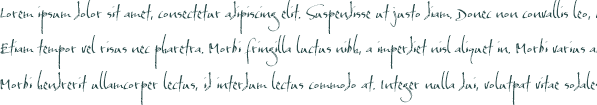 Lorem ipsum dolor sit amet, consectetur adipiscing elit. Suspendisse ut justo diam. Donec non convallis leo,
Etiam tempor vel risus nec pharetra. Morbi fringilla luctus nibh, a imperdiet nisl aliquet in. Morbi varius a
Morbi hendrerit ullamcorper lectus, id interdum lectus commodo at. Integer nulla dui, volutpat vitae sodales